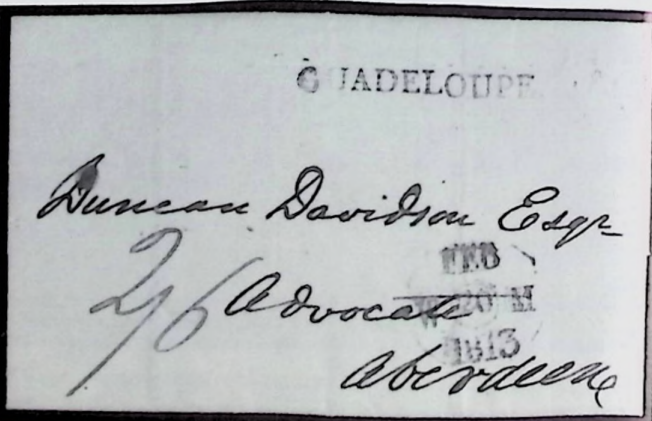 GUADELOUPE
Duncan Davidson Esqr
FEB
2/6 Advocate 20 M
1813
Aberdeen